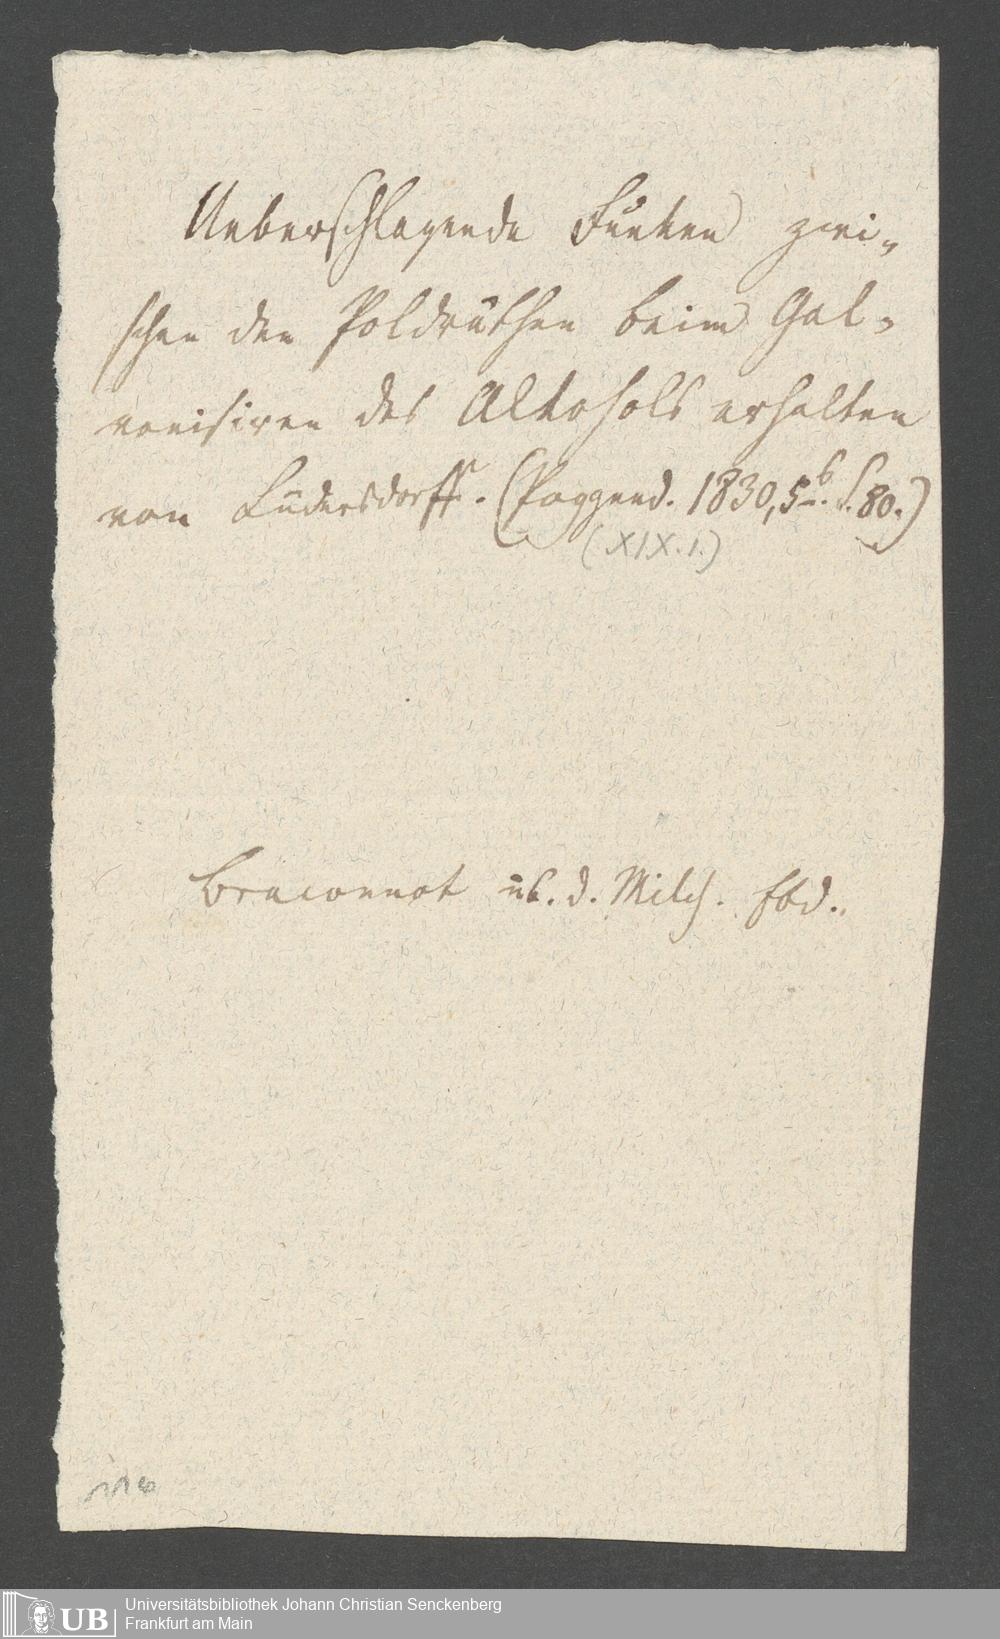 Ueberschlagende Funken zwi-
schen den Poldräthen beim Gal-
vanisiren des Alkohols erhalten
von Lüdersdorff. (Poggend. 1830, 5. S. 80.)
(XIX. 1.)
Braconnot üb. d. Milch. Ebd..
116
UB
Universitätsbibliothek Johann Christian Senckenberg
Frankfurt am Main